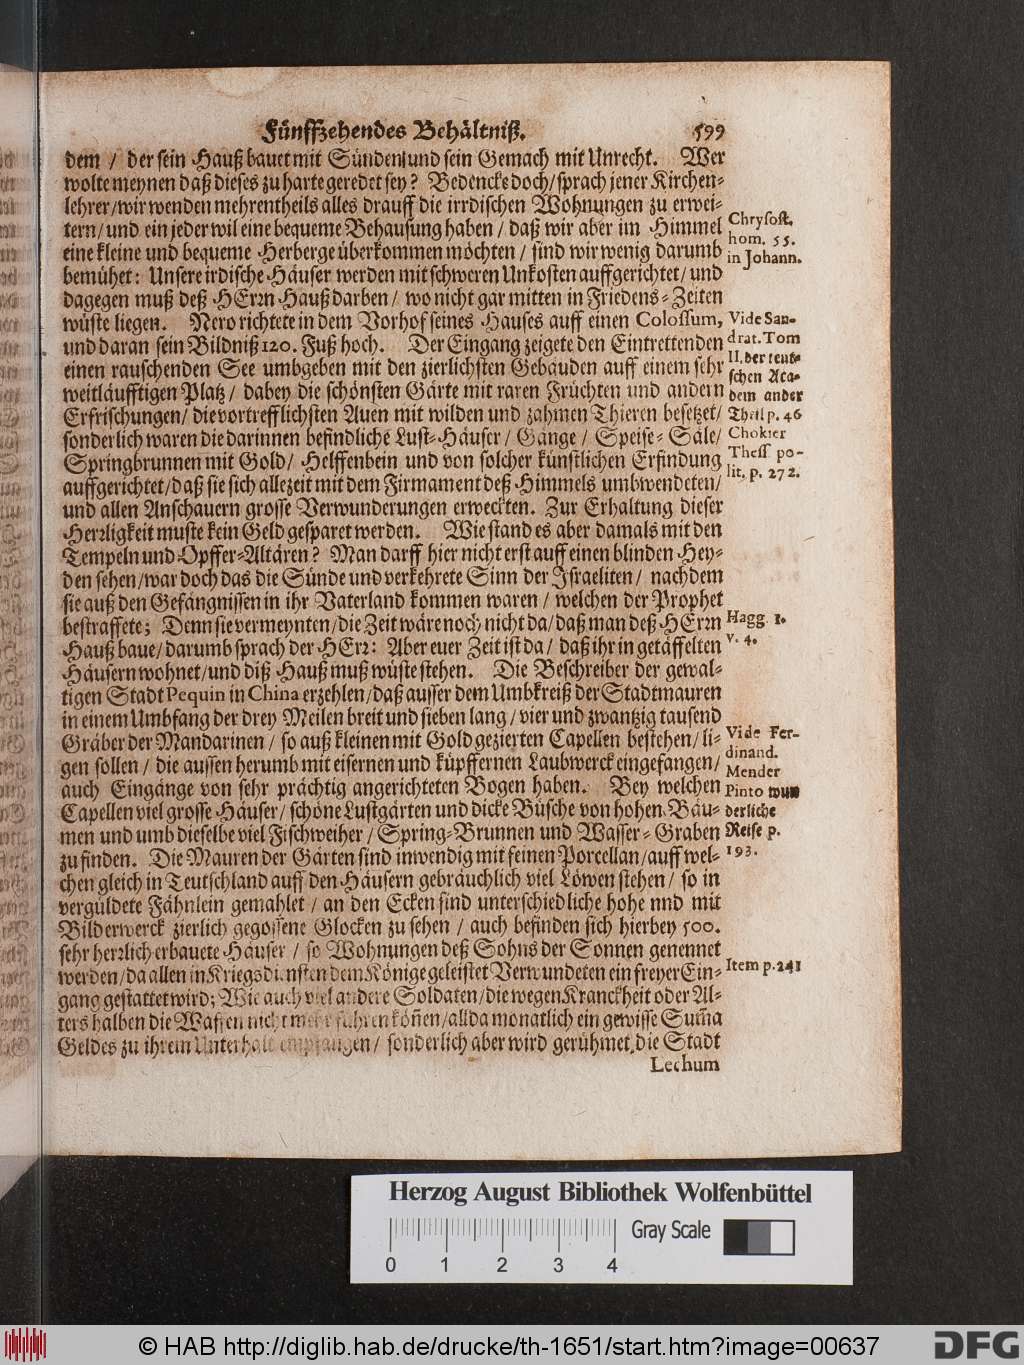 Fünffzehendes Behältniß. 599
dem / der sein Hauß bauet mit Sünden / und sein Gemach mit Unrecht. Wer
wolte meynen daß dieses zu harte geredet sey? Bedencke doch / sprach jener Kirchen-
lehrer / wir wenden mehrentheils alles drauff die irrdischen Wohnungen zu erwei-
tern / und ein jeder wil eine bequeme Behausung haben / daß wir aber im Himmel
eine kleine und bequeme Herberge überkommen möchten / sind wir wenig darumb
bemühet: Unsere irdische Häuser werden mit schweren Unkosten auffgerichtet / und
dagegen muß deß HErrn Hauß darben / wo nicht gar mitten in Friedens-Zeiten
wüste liegen. Nero richtete in dem Vorhof seines Hauses auff einen Colossum,
und daran sein Bildniß 120. Fuß hoch. Der Eingang zeigete den Eintrettenden
einen rauschenden See umbgeben mit den zierlichsten Gebäuden auff einem sehr
weitläufftigen Platz / dabey die schönsten Gärte mit raren Früchten und andern
Erfrischungen / die vortrefflichsten Auen mit wilden und zahmen Thieren besetzet /
sonderlich waren die darinnen befindliche Lust-Häuser / Gänge / Speise-Säle /
Springbrunnen mit Gold / Helffenbein und von solcher künstlichen Erfindung
auffgerichtet / daß sie sich allezeit mit dem Firmament deß Himmels umbwendeten /
und allen Anschauern grosse Verwunderungen erweckten. Zur Erhaltung dieser
Herrligkeit muste kein Geld gesparet werden. Wie stand es aber damals mit den
Tempeln und Opffer-Altären? Man darff hier nicht erst auff einen blinden Hey-
den sehen / war doch das die Sünde und verkehrete Sinn der Israeliten / nachdem
sie auß den Gefängnissen in ihr Vaterland kommen waren / welchen der Prophet
bestraffete; Denn sie vermeynten / die Zeit wäre noch nicht da / daß man deß HErrn
Hauß baue / darumb sprach der HErr: Aber euer Zeit ist da / daß ihr in getäffelten
Häusern wohnet / und diß Hauß muß wüste stehen. Die Beschreiber der gewal-
tigen Stadt Pequin in China erzehlen / daß ausser dem Umbkreiß der Stadtmauren
in einem Umbfang der drey Meilen breit und sieben lang / vier und zwantzig tausend
Gräber der Mandarinen / so auß kleinen mit Gold gezierten Capellen bestehen / li-
gen sollen / die aussen herumb mit eisernen und küpffernen Laubwerck eingefangen /
auch Eingänge von sehr prächtig angerichteten Bogen haben. Bey welchen
Capellen viel grosse Häuser / schöne Lustgärten und dicke Büsche von hohen Bäu-
men und umb dieselbe viel Fischweiher / Spring-Brunnen und Wasser-Graben
zu finden. Die Mauren der Gärten sind inwendig mit feinen Porcellan / auff wel-
chen gleich in Teutschland auff den Häusern gebräuchlich viel Löwen stehen / so in
vergüldete Fähnlein gemahlet / an den Ecken sind unterschiedliche hohe nnd mit
Bilderwerck zierlich gegossene Glocken zu sehen / auch befinden sich hierbey 500.
sehr herrlich erbauete Häuser / so Wohnungen deß Sohns der Sonnen genennet
werden / da allen in Kriegsdi nsten dem Könige geleistet Verwundeten ein freyer Ein-
gang gestattet wird; Wie auch viel andere Soldaten / die wegen Kranckheit oder Al-
ters halben die Waffen nicht mehr führen kön̄en / allda monatlich ein gewisse Sum̄a
Geldes zu ihrem Unterhalt empfangen / sonderlich aber wird gerühmet die Stadt
Lechum
Chrysost.
hom. 55.
in Johann.
Vide San-
drat. Tom
II. der teut-
schen Aca-
dem ander
Theil p. 46
Chokier
Thess po-
lit, p. 272.
Hagg. 1.
v. 4.
Vide Fer-
dinand.
Mender
Pinto wun
derliche
Reise p.
193.
Item p. 241
Herzog August Bibliothek Wolfenbüttel
Gray Scale
0 1 2 3 4
© HAB http://diglib.hab.de/drucke/th-1651/start.htm?image=00637
DFG